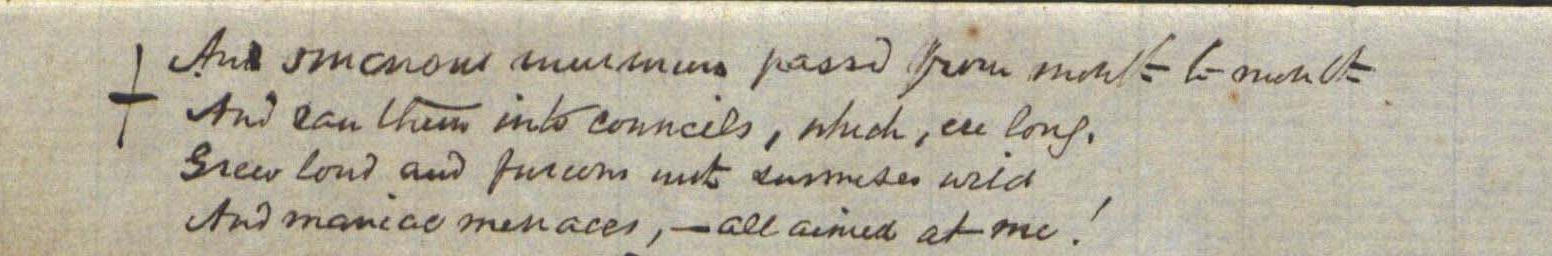 And ominous murmurs pass'd from mouth to mouth
And ran them into councils, which, ere long,
Grew loud and furious with surmises wild
And maniac menaces, — all aimed at me!